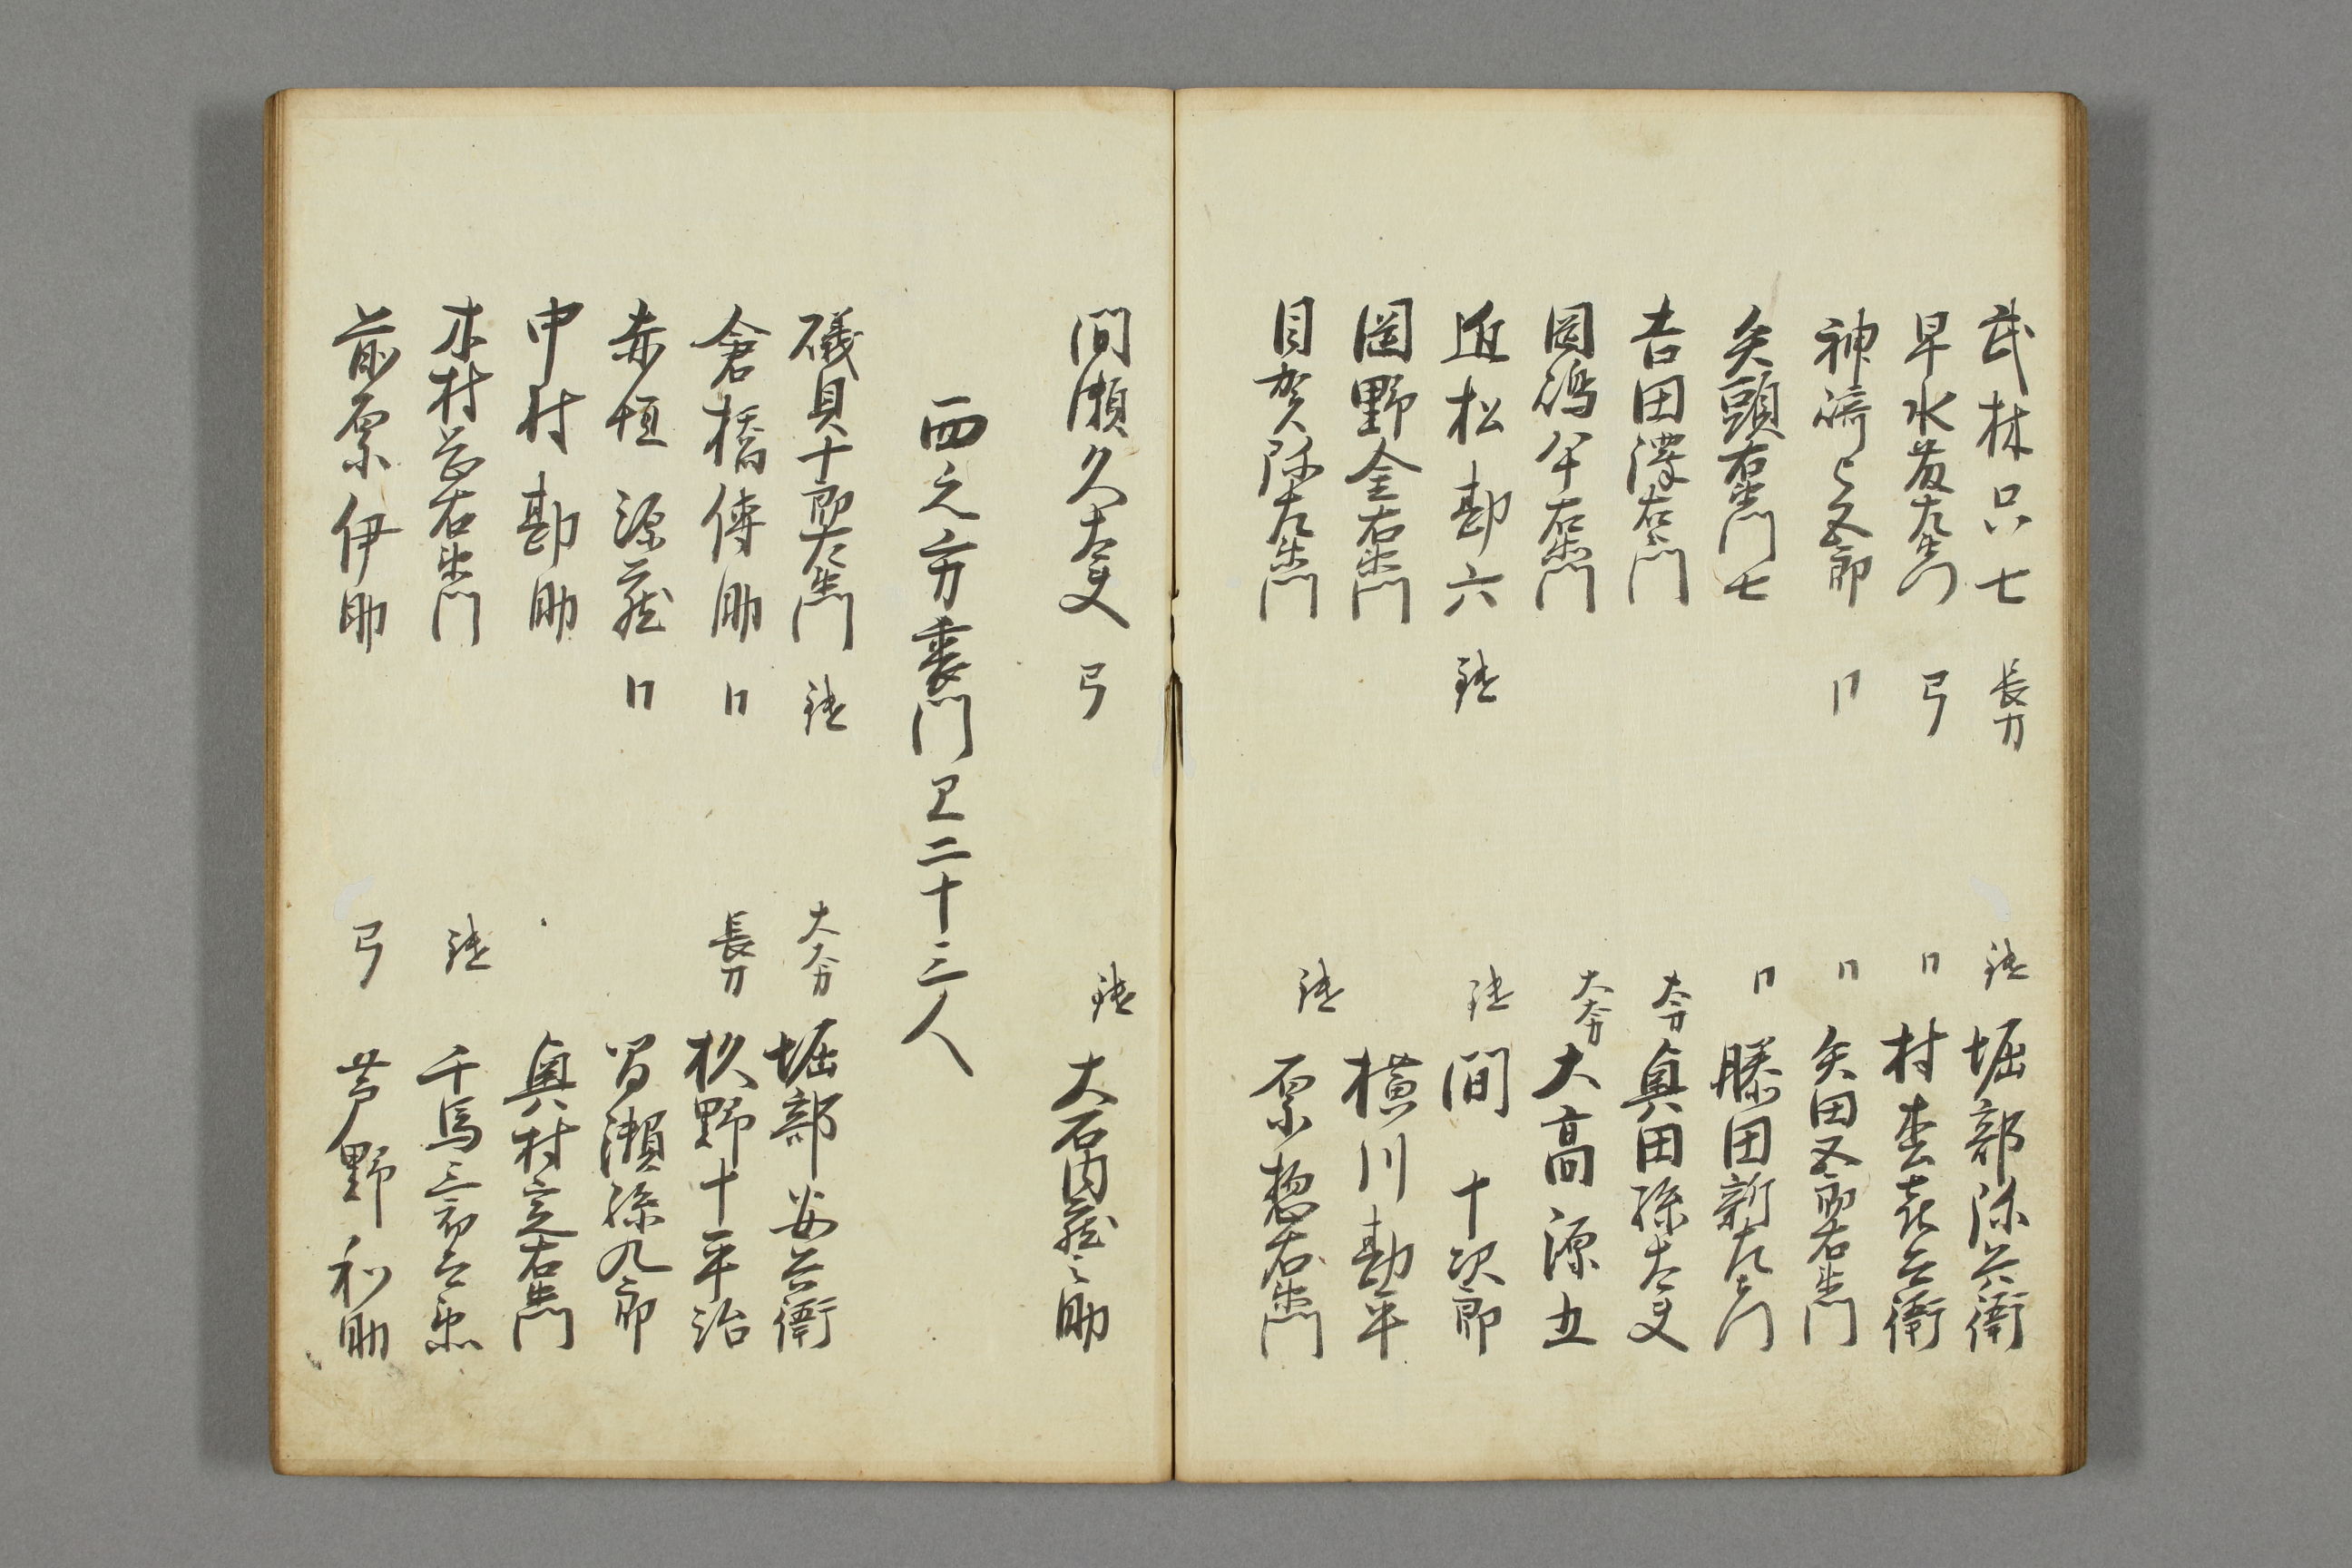 武林只七 長刀
鑓 堀部弥兵衛
早水藤左衛門 弓
〃 村松喜兵衛
神崎与五郎 〃
〃 矢田五郎右衛門
矢頭右衛門七
〃 勝田新左衛門
吉田澤右衛門
大太刀 奥田孫太夫
岡嶋八十右衛門
大太刀 大高源五
近松勘六 鑓
鑓 間 十次郎
岡野金右衛門
横川勘平
貝賀弥左衛門
鑓 原惣右衛門
間瀬久太夫 弓
鑓 大石内蔵之助
西之方裏門ヱ二十三人
礒貝十郎左衛門 鑓
大太刀 堀部安兵衛
倉橋傳助 〃
長刀 杉野十平治
赤垣源蔵 〃
間瀬孫九郎
中村勘助
奥村定右衛門
木村岡右衛門
鑓 千馬三郎兵衛
前原伊助
弓 茅野和助